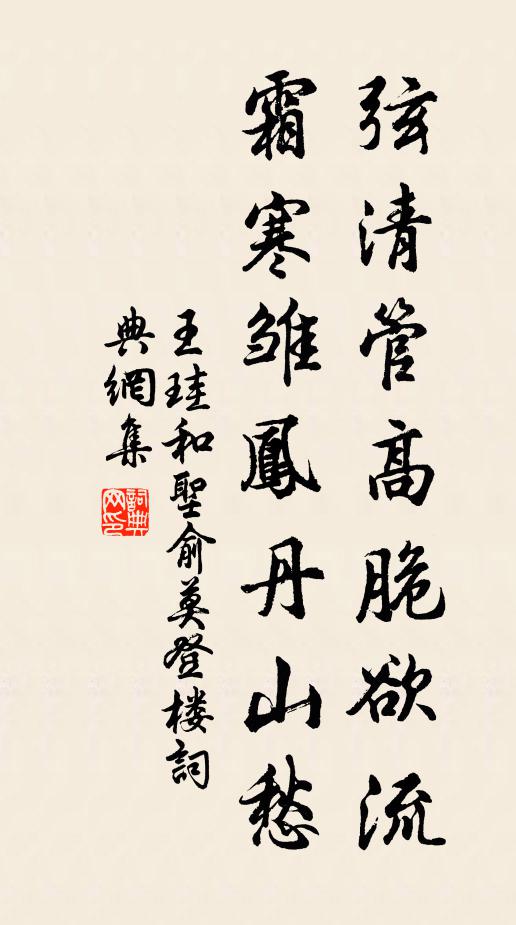 弦清管高脆欲流
霜寒雏鳳丹山愁
王珪和聖俞莫登楼詞
典網集
詞典网印